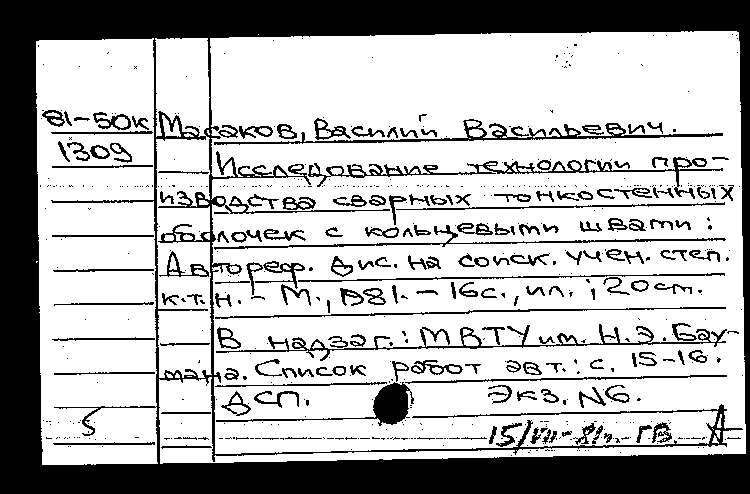 81-50к Масаков, Василий Васильевич.
1309 Исследование технологии про-
изводства сварных тонкостенных
оболочек с кольцевыми швами:
Автореф. дис. на соиск. учен. степ.
к.т.н. - М., 1981. - 16с., ил.; 20см.
В надзаг.: МВТУ им. Н.Э. Бау-
мана. Список работ авт.: с. 15-16.
ДСП. Экз. N6.
5 15/VII-81г. ГВ. А